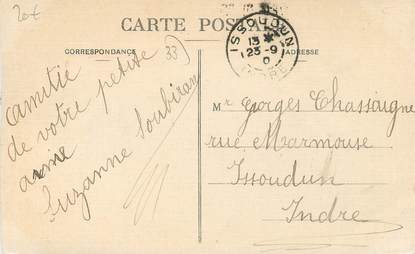 20€
CARTE POSTALE
CORRESPONDANCE
ADRESSE
33)
ISSOUDUN
13
23-9
INDRE
camitié
de votre petite
amie
Suzanne Soubiran
Mr Georges Chassaigne
rue Marmouse
Issoudun
Indre